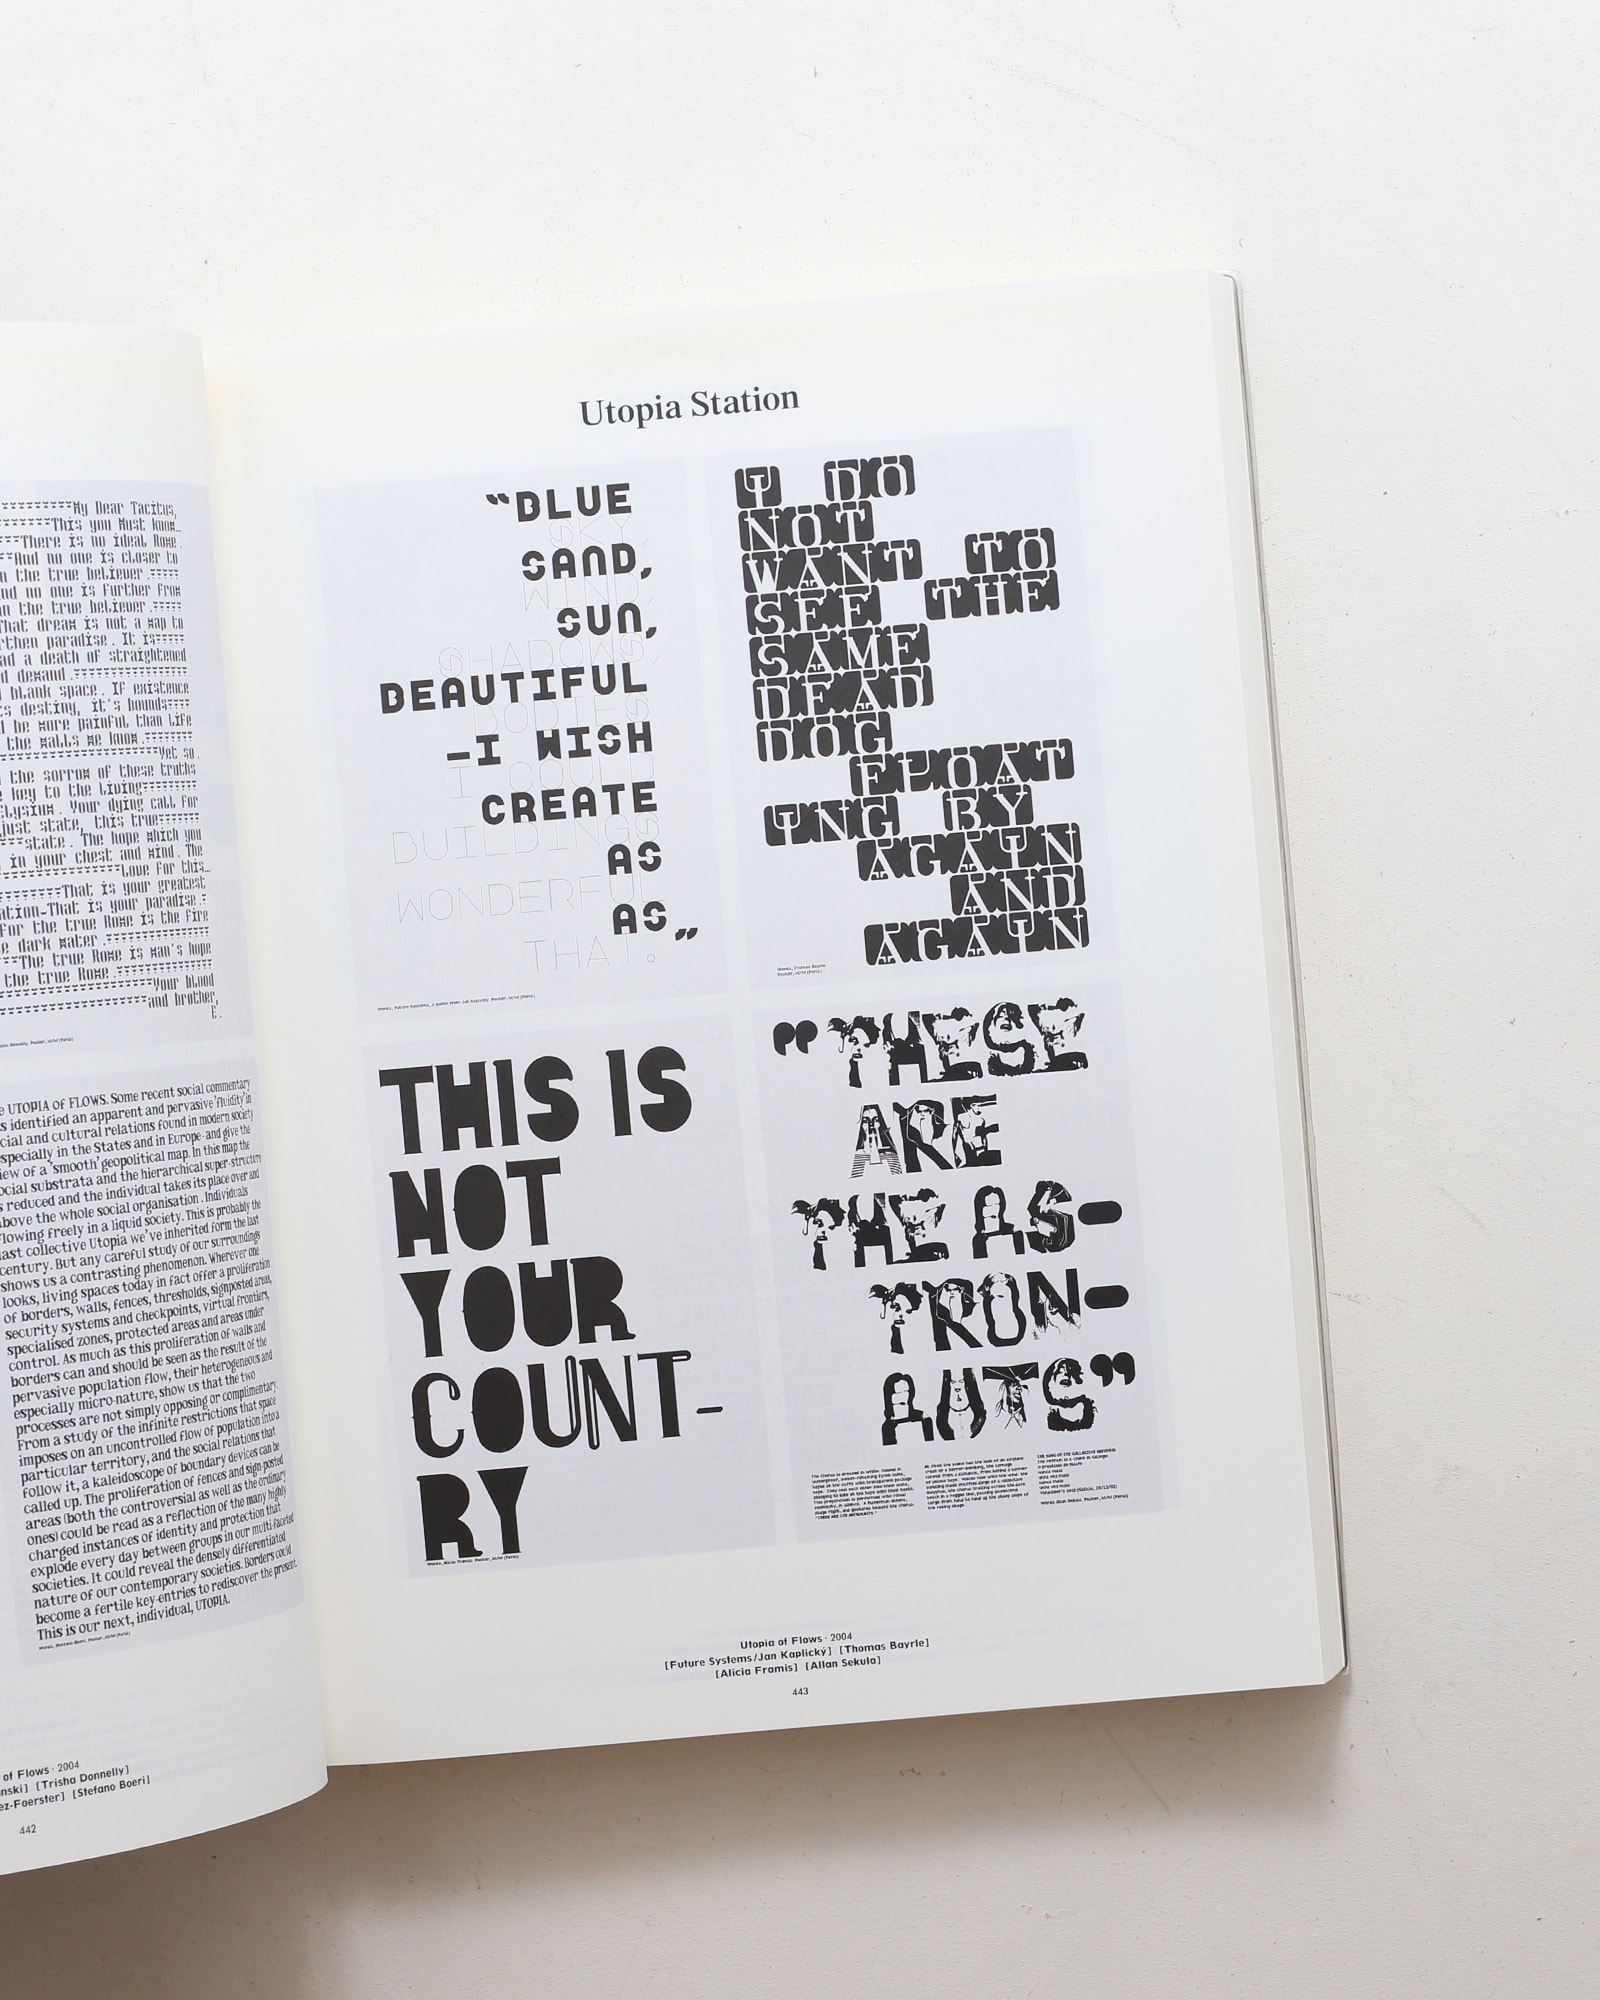 My Dear Tacitus,
This you Must know…
There is no ideal Rome.
And no one is closer to
the true believer.
nd no one is further from
n the true believer.
That dream is not a map to
rthen paradise. It is
ad a death of straightened
d demand.
blank space. If existence
s destiny, it's bounds
l be more painful than life
the walls we know.
Yet so.
the sorrow of these truths
e key to the living
Elysium. Your dying call for
just state, this true
state. The hope which you
in your chest and mind. The
Love for this…
That is your greatest
ation-That is your paradise.
For the true Rome is the fire
e dark water.
The true Rome is man's hope
the true Rome.
Your blood
and brother,
E.
e UTOPIA of FLOWS. Some recent social commentary
s identified an apparent and pervasive 'fluidity' in
cial and cultural relations found in modern society
especially in the States and in Europe-and give the
iew of a 'smooth' geopolitical map. In this map the
ocial substrata and the hierarchical super-structure
s reduced and the individual takes its place over and
above the whole social organisation. Individuals
flowing freely in a liquid society. This is probably the
last collective Utopia we've inherited form the last
century. But any careful study of our surroundings
shows us a contrasting phenomenon. Wherever one
looks, living spaces today in fact offer a proliferation
of borders, walls, fences, thresholds, signposted areas,
security systems and checkpoints, virtual frontiers,
specialised zones, protected areas and areas under
control. As much as this proliferation of walls and
borders can and should be seen as the result of the
pervasive population flow, their heterogeneous and
especially micro-nature, show us that the two
processes are not simply opposing or complimentary.
From a study of the infinite restrictions that space
imposes on an uncontrolled flow of population into a
particular territory, and the social relations that
follow it, a kaleidoscope of boundary devices can be
called up. The proliferation of fences and sign-posted
areas (both the controversial as well as the ordinary
ones) could be read as a reflection of the many highly
charged instances of identity and protection that
explode every day between groups in our multi-faceted
societies. It could reveal the densely differentiated
nature of our contemporary societies. Borders could
become a fertile key-entries to rediscover the present.
This is our next, individual, UTOPIA.
Words, Stefano Boeri. Poster, M/M (Paris)
of Flows · 2004
nski] [Trisha Donnelly]
ez-Foerster] [Stefano Boeri]
442
Utopia Station
“BLUE
SKY,
SAND,
WIND,
SUN,
SHADOWS,
BEAUTIFUL
BODIES
–I WISH
I COULD
CREATE
BUILDINGS
AS
WONDERFUL
AS„
THAT.
Words, Future Systems, a game from Jan Kaplický. Poster, M/M (Paris)
I DO
NOT
WANT TO
SEE THE
SAME
DEAD
DOG
FLOAT
ING BY
AGAIN
AND
AGAIN
Words, Thomas Bayrle.
Poster, M/M (Paris)
THIS IS
NOT
YOUR
COUNT-
RY
Words, Alicia Framis. Poster, M/M (Paris)
“THESE
ARE
THE AS-
TRON-
AUTS”
"THESE ARE THE ASTRONAUTS."
THE SONG OF THE COLLECTIVE SISYPHUS
Words Allan Sekula. Poster, M/M (Paris)
Utopia of Flows · 2004
[Future Systems/Jan Kaplický] [Thomas Bayrle]
[Alicia Framis] [Allan Sekula]
443